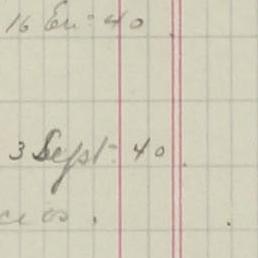 16 En: 40
3 Sept: 40